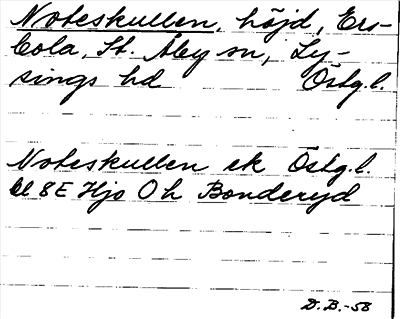 Noteskullen, höjd, Ers-
bola, St. Åby sn, Ly-
sings hd Östg.l.
Noteskullen ek Östg.l.
bl 8E Hjo Oh Bonderyd
D.B.-58